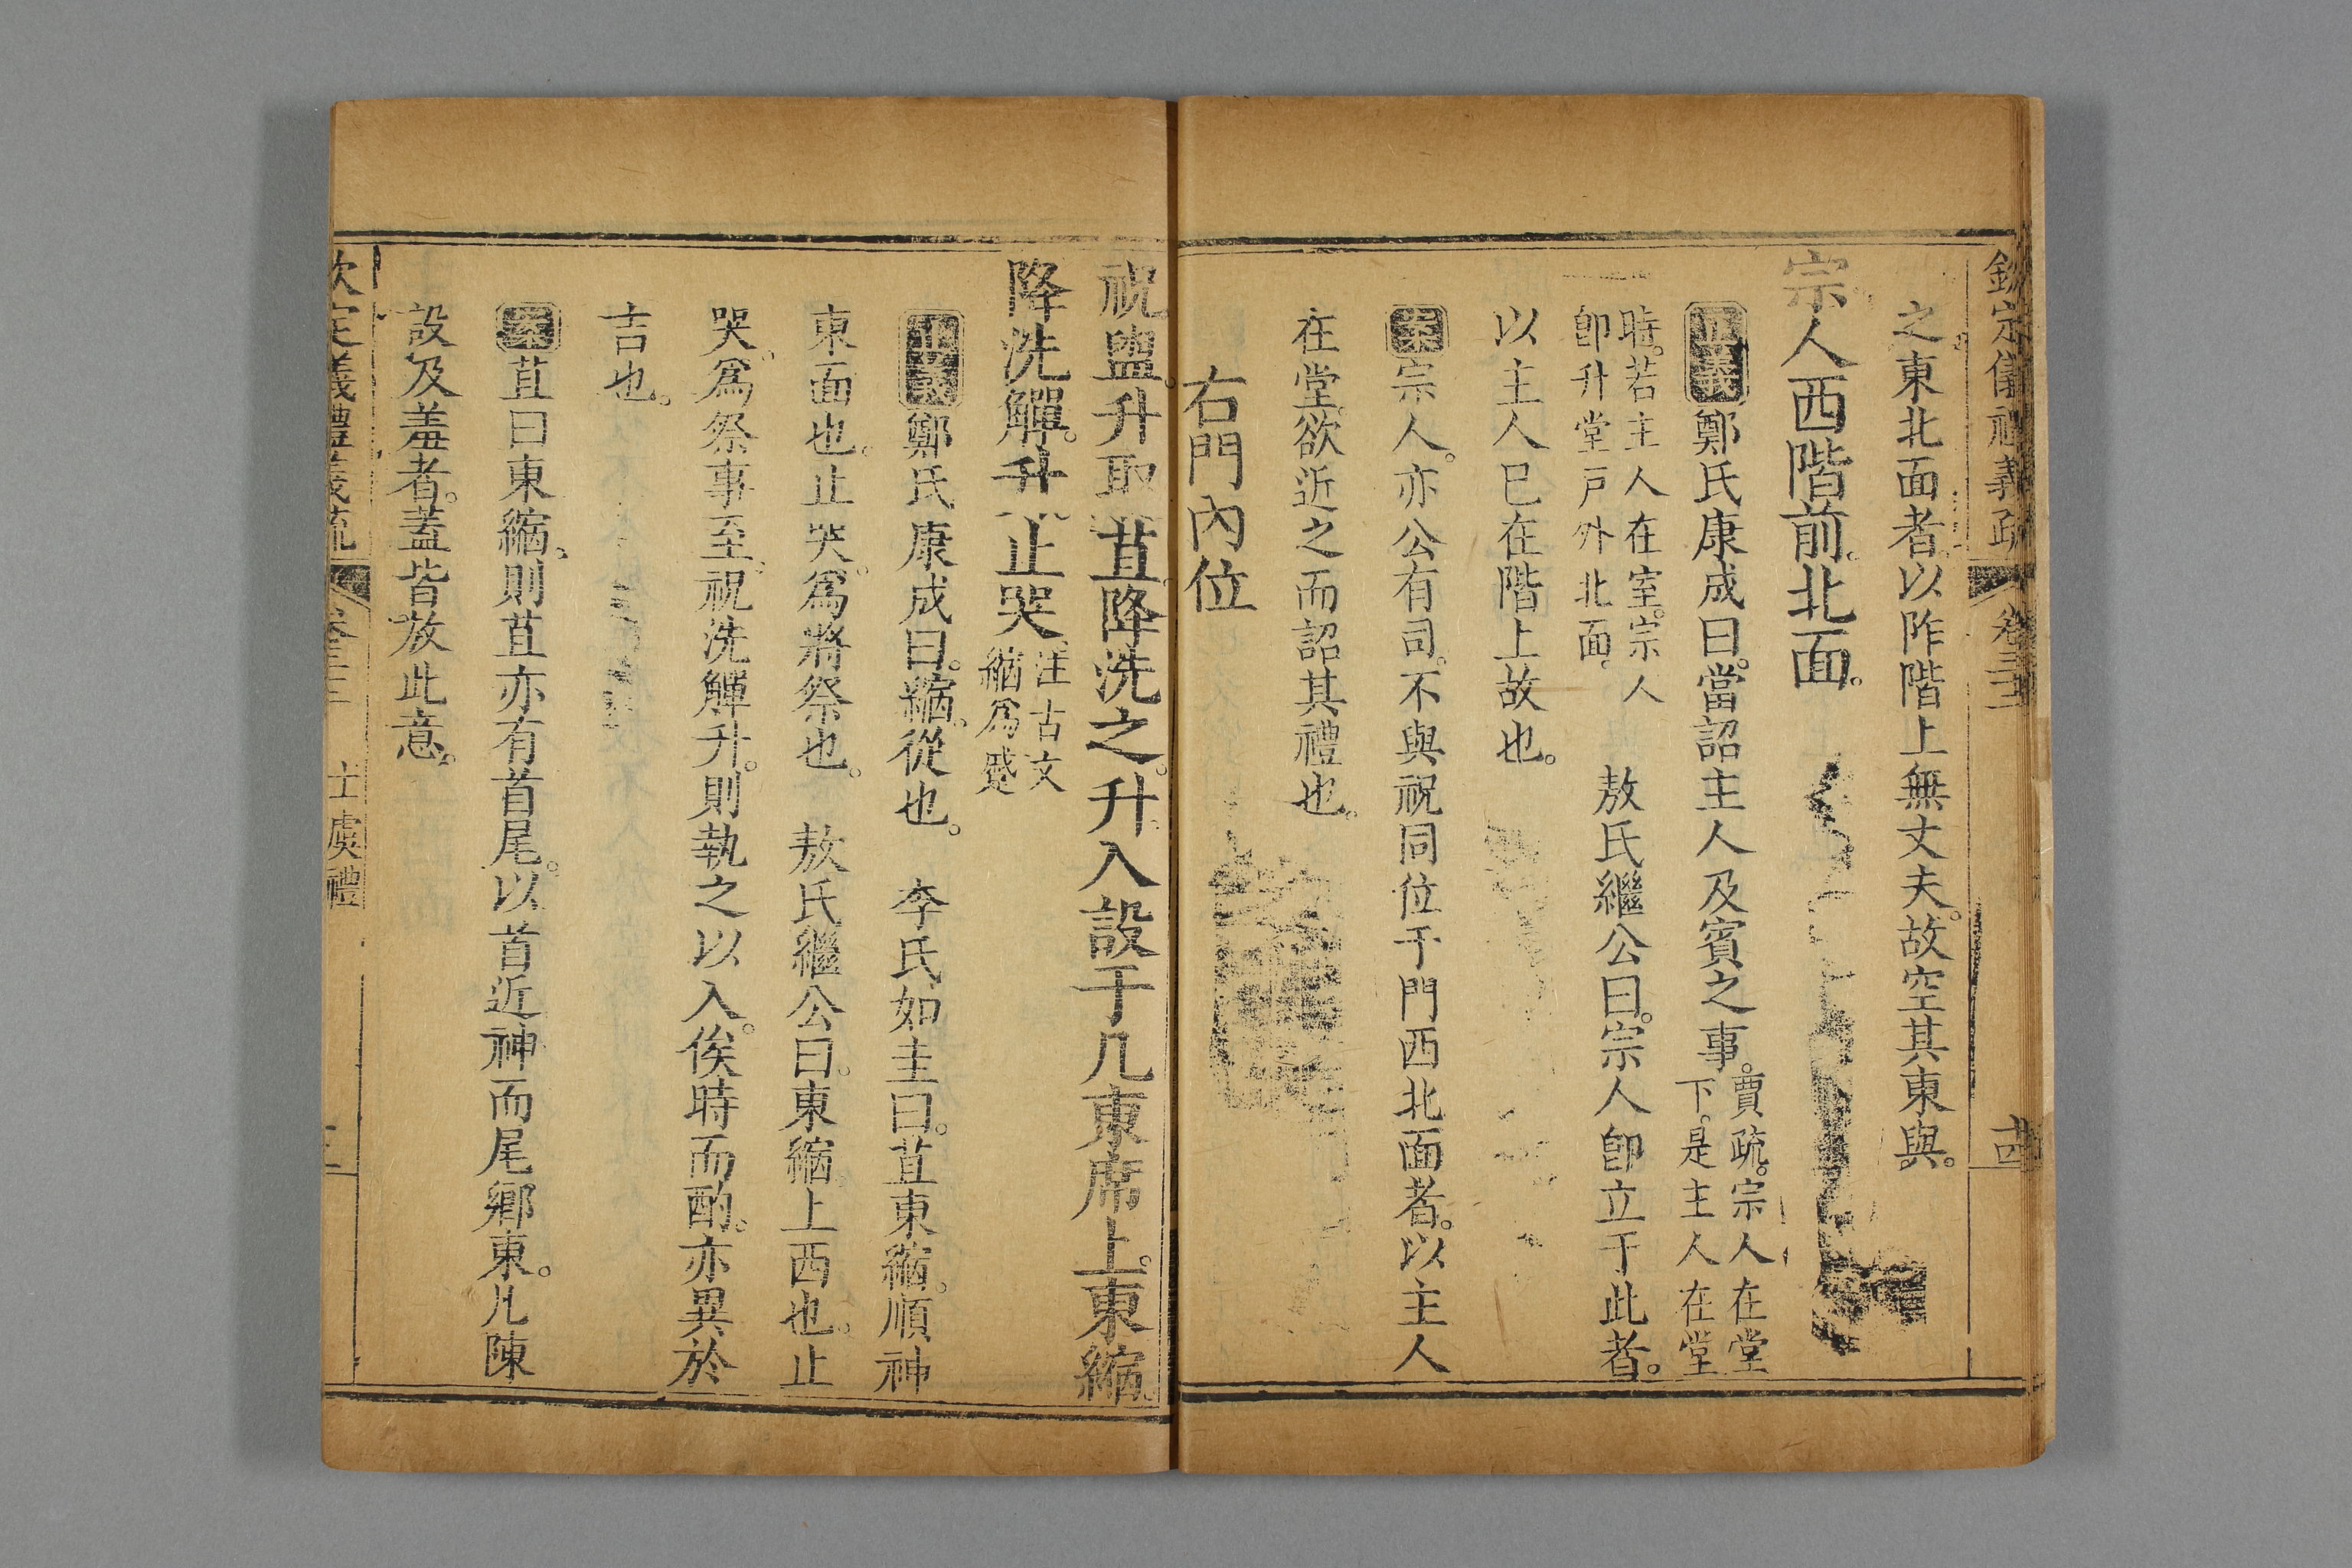 欽定儀禮義疏 卷三十三 十四
之東北面者以阼階上無丈夫。故空其東與。
宗人西階前北面。
正義鄭氏康成曰。當詔主人及賓之事。賈疏。宗人在堂下。是主人在堂
時。若主人在室。宗人即升堂戸外北面。 敖氏繼公曰。宗人卽立于此者。
以主人已在階上故也。
案宗人。亦公有司。不與祝同位于門西北面者。以主人
在堂。欲近之而詔其禮也。
右門內位
祝盥升取苴降洗之。升入設于几東席上。東縮。
降洗觶。升止哭。注古文縮爲蹙
正義鄭氏康成曰。縮。從也。 李氏如圭曰。苴東縮。順神
東面也。止哭。爲將祭也。 敖氏繼公曰。東縮。上西也。止
哭。爲祭事至。祝洗觶升。則執之以入。俟時而酌。亦異於
吉也。
案苴曰東縮。則苴亦有首尾。以首近神而尾鄉東。凡陳
設及羞者。蓋皆放此意。
欽定儀禮義疏 卷三十三 士虞禮